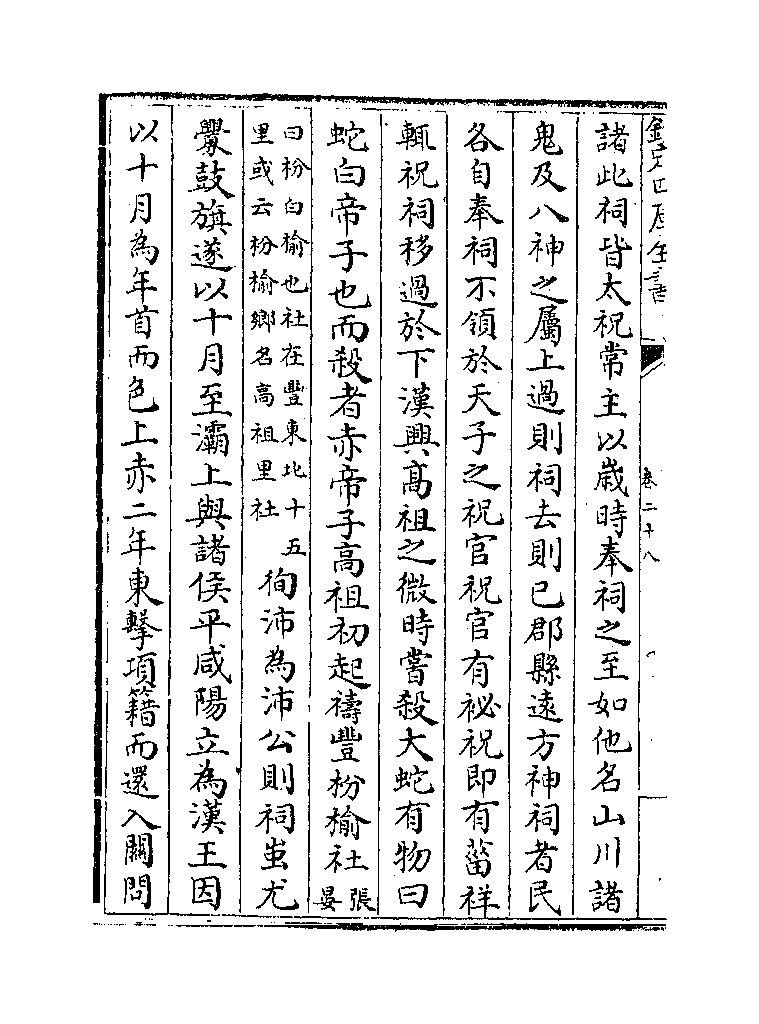 欽定四庫全書
卷二十八
諸此祠皆太祝常主以歳時奉祠之至如他名山川諸
鬼及八神之屬上過則祠去則已郡縣逺方神祠者民
各自奉祠不領於天子之祝官祝官有祕祝即有菑祥
輒祝祠移過於下漢興髙祖之微時嘗殺大蛇有物曰
蛇白帝子也而殺者赤帝子高祖初起禱豐枌榆社張晏
曰枌白榆也社在豐東北十五
里或云枌榆鄉名高祖里社
徇沛為沛公則祠蚩尤
釁鼓旗遂以十月至灞上與諸侯平咸陽立為漢王因
以十月為年首而色上赤二年東擊項籍而還入關問